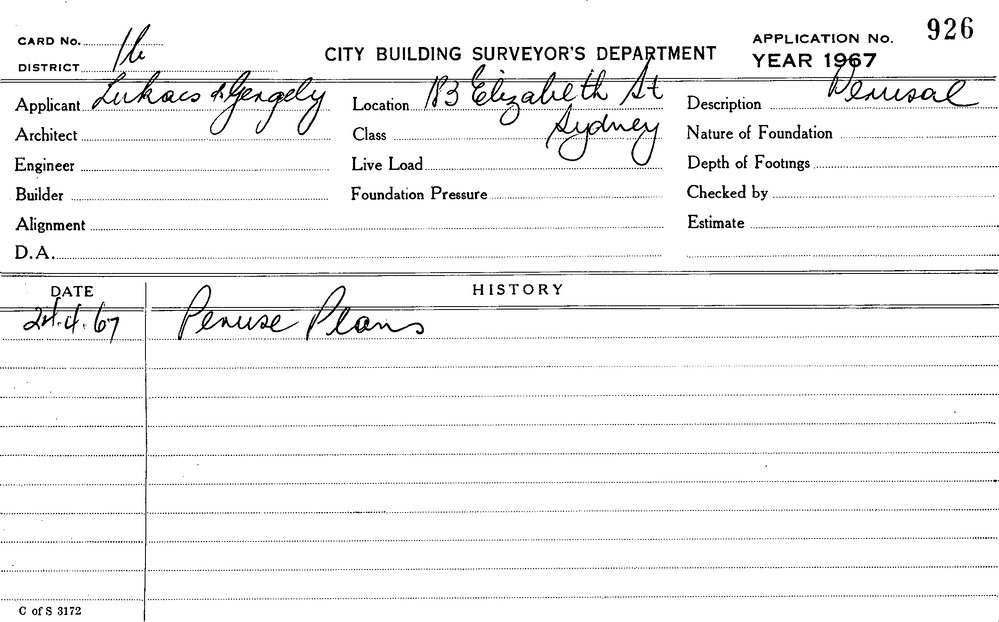 CARD No. 16
DISTRICT
CITY BUILDING SURVEYOR'S DEPARTMENT
APPLICATION No. 926
YEAR 1967
Applicant Lukacs & Gergely
Location 183 Elizabeth St
Sydney
Description Perusal
Architect
Class
Nature of Foundation
Engineer
Live Load
Depth of Footings
Builder
Foundation Pressure
Checked by
Alignment
Estimate
D.A.
DATE
HISTORY
24.4.67 Peruse Plans
C of S 3172